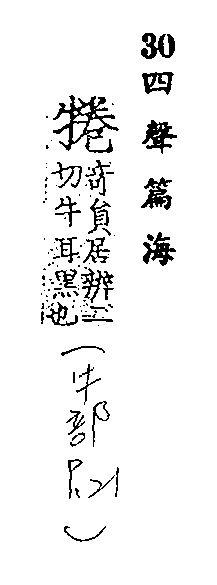 30 四聲篇海
犈竒員居辨二
切牛耳黑也
(牛部P.21)